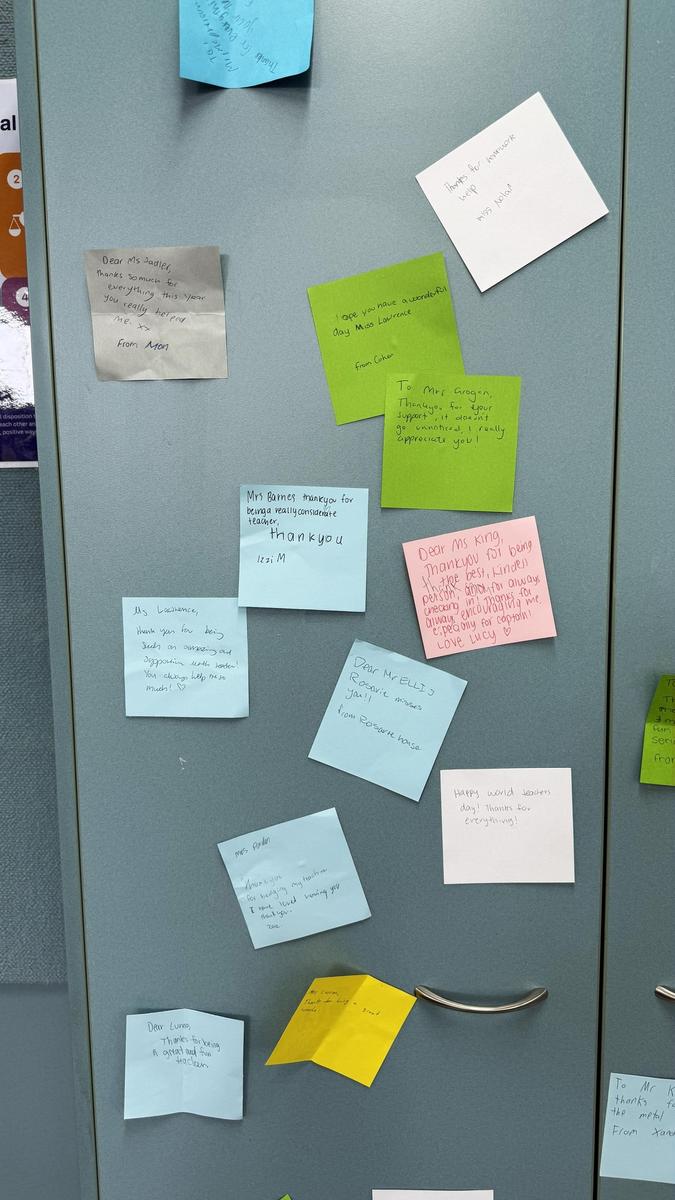 To!
Thanks
for everyone
al
2
4
disposition
each other an
positive way
Thanks for homework
help
miss Nolan
Dear Ms Sadler,
thanks so much for
everything this year
you really helped
me. xx
From Mon
I ope you have a wonderful
day Miss Lawrence
from Coher
To Mrs Grogan,
Thankyou for your
support, it doesnt
go unnoticed, I really
appreciate you!
Mrs Barnes thankyou for
being a really considerate
teacher,
thankyou
Izzi M
Dear Ms King,
Thankyou for being
the best, kindest
person, and for always
checking in! Thanks for
always encouraging me,
especially for captain!
Love Lucy ♡
Ms Lawrence,
thank you for being
such an amazing and
supportive teacher!
You always help me so
much! ♡
Dear Mr ELLIS
Rosarie misses
you!!
from Rosarie house
Happy world teachers
day! Thanks for
everything!
Mrs
Thankyou
for being my teacher
I have loved knowing you
thankyou.
zoe
Thanks for being a great
Dear Luma,
Thanks for being
A great and fun
teacher
To
Th
fun
seni
from
To Mr K
thanks fo
the metal
From Xan